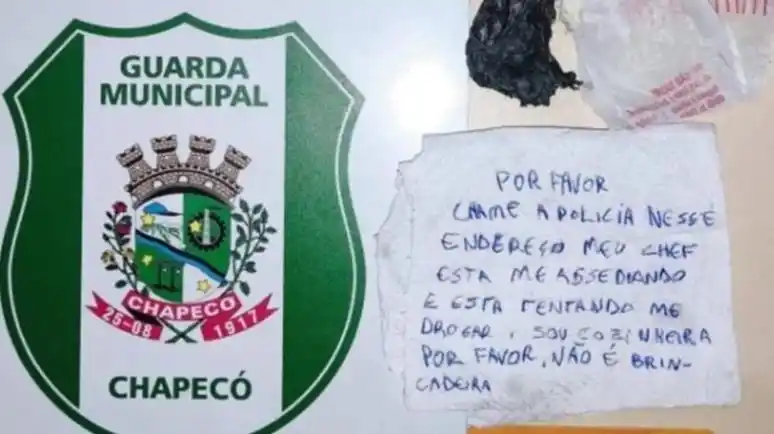 GUARDA
MUNICIPAL
CHAPECÓ
25-08 1917
CHAPECÓ
POR FAVOR
CHAME A POLICIA NESSE
ENDEREÇO MEU CHEF
ESTA ME ASSEDIANDO
E ESTA TENTANDO ME
DROGAR, SOU COZINHEIRA
POR FAVOR, NÃO É BRIN-
CADEIRA